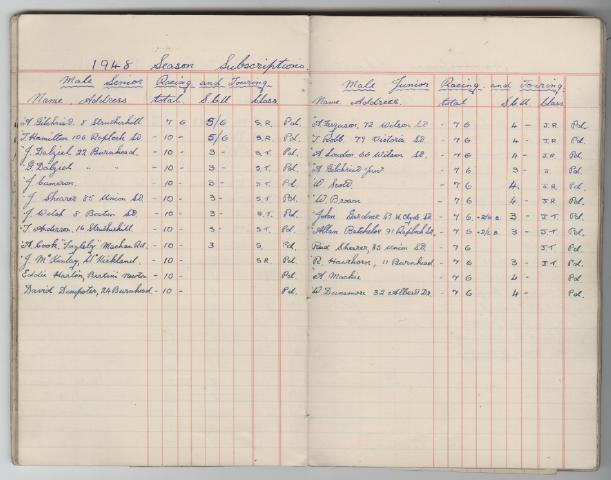 1948 Season Subscriptions.
Male Senior Racing and Touring.
Name. Address total S.b.U Class
A Gilchrist. 8 Strutherhill 7 6 5/6 S.R. Pd.
T. Hamilton 106 Raploch St. - 10 - 5/6 S.R. Pd.
J. Dalziel 22 Burnhead - 10 - 3 - S.T. Pd.
G. Dalziel " " - 10 - 3 - S.T. Pd.
J Cameron. - 10 - 3 - S.T. Pd.
J Shearer 85 Union St. - 10 - 3 - S.T. Pd.
J Welsh 8 St. - 10 - 3 - S.T. Pd.
T. Anderson, 16 Strutherhill - 10 - 3 - S.T. Pd.
A. Cook Machan Rd. - 10 - 3 S. Pd.
J. McKinlay, Kirkland. - 10 - S.R. Pd.
Eddie - 10 - Pd.
David Dempster, 24 Burnhead - 10 - Pd.
Male Junior Racing and Touring.
Name Address. total S.b.U Class
A Ferguson, 72 Wilson St - 7 6 4 - J.R. Pd.
T. Robb. 79 Victoria St. - 7 6 4 - J.R. Pd.
A London 60 Wilson St. - 7 6 4 - J.R. Pd.
A Gilchrist Junr - 7 6 3 - J. Pd.
W. Scott. - 7 6 4. J.R. Pd.
W. Brown - 7 6 4 - J.R. Pd.
John Gardner 59 N. Clyde St. - 7 6 3 - J.T. Pd.
Allan Batchelor 91 Raploch St. - 7 6 3 - J.T. Pd.
Shearer, 85 Union St. - 7 6 J.T. Pd.
R. Hawthorn, 11 Burnhead - 7 6 3 - J.T. Pd.
A Mackie - 7 6 4 - Pd.
W Dunsmore 32 Albert Dr. - 7 6 4 - Pd.